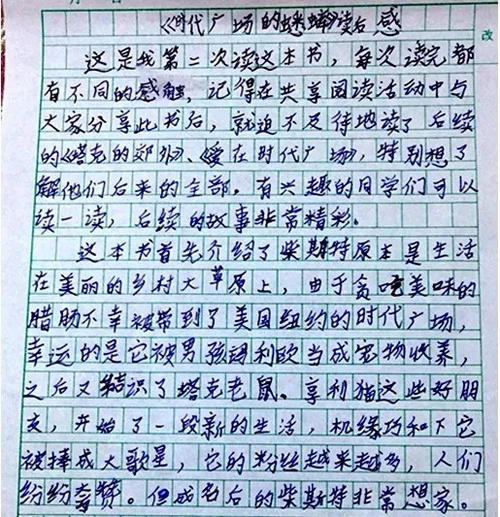 《时代广场的蟋蟀》读后感
改
这是我第二次读这本书，每次读完都
有不同的感触，记得在共享阅读活动中与
大家分享此书后，就迫不及待地读了后续
的《塔克的郊外》、《爱在时代广场》，特别想了
解他们后来的全部。有兴趣的同学们可以
读一读，后续的故事非常精彩。
这本书首先介绍了柴斯特原本是生活
在美丽的乡村大草原上，由于贪吃美味的
腊肠不幸被带到了美国纽约的时代广场，
幸运的是它被男孩玛利欧当成宠物收养，
之后又结识了塔克老鼠、亨利猫这些好朋
友，开始了一段新的生活，机缘巧和下它
被捧成大歌星，它的粉丝越来越多，人们
纷纷夸赞。但成名后的柴斯特非常想家。